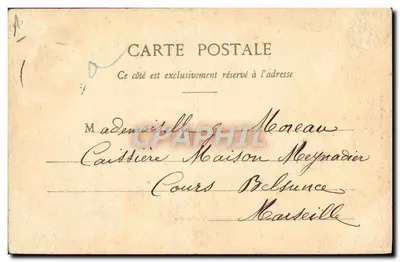 CARTE POSTALE
Ce côté est exclusivement réservé à l'adresse
Mademoiselle Moreau
Caissière Maison Meynadier
Cours Belsunce
Marseille
CPAPHIL